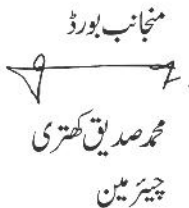 منجانب بورڈ
محمد صدیق کھتری
چیئرمین